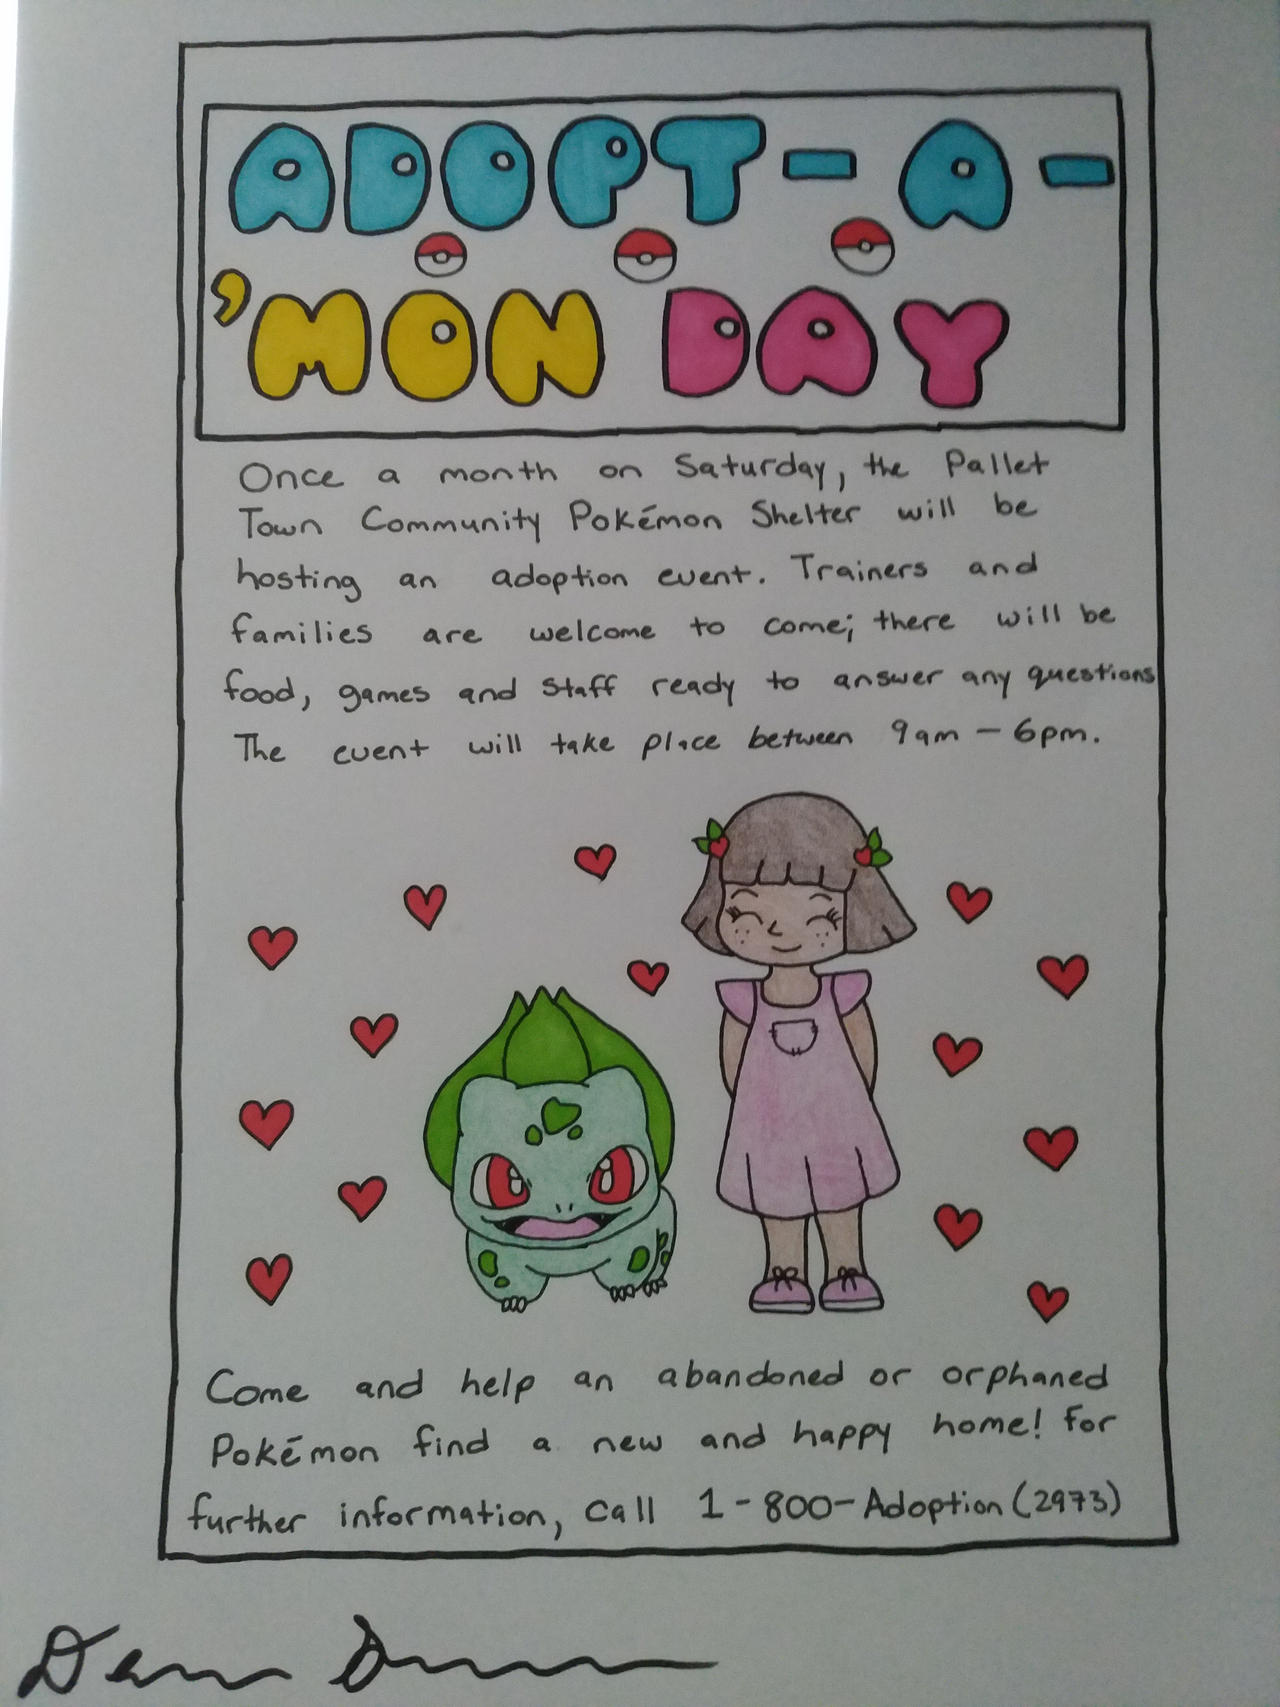 ADOPT-A-
'MON DAY
Once a month on Saturday, the Pallet
Town Community Pokémon Shelter will be
hosting an adoption event. Trainers and
families are welcome to come; there will be
food, games and staff ready to answer any questions
The event will take place between 9am - 6pm.
Come and help an abandoned or orphaned
Pokémon find a new and happy home! For
further information, call 1-800-Adoption (2973)